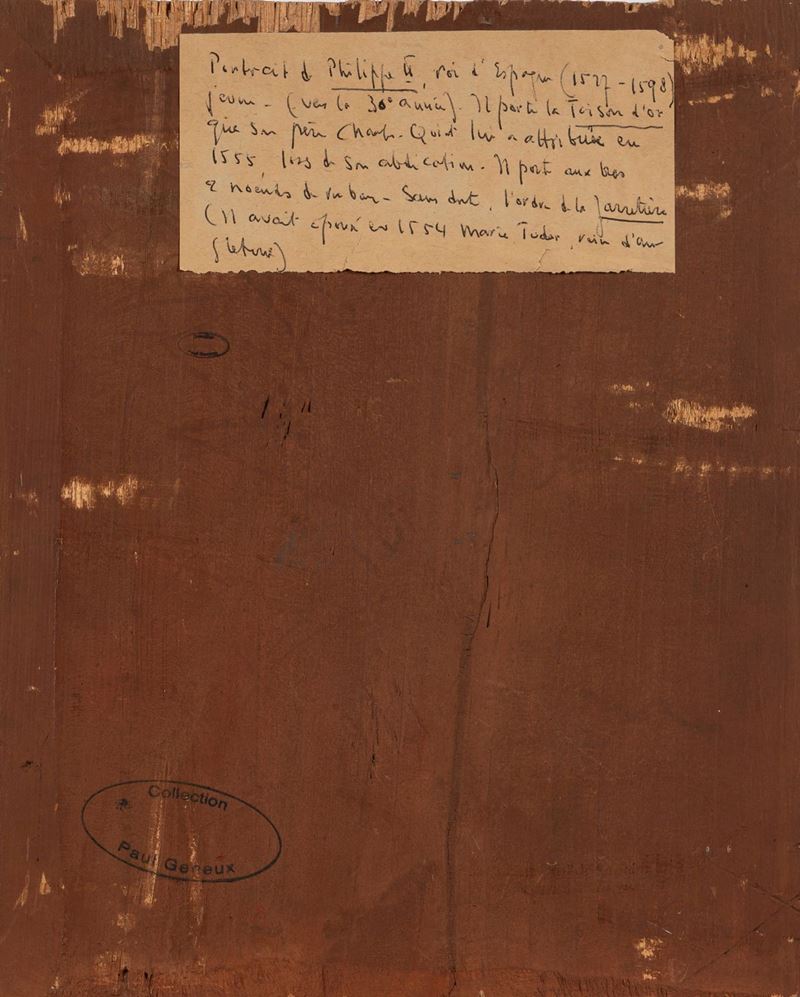 Portrait de Philippe II, roi d'Espagne (1527-1598)
jeune - (vers la 30e année). Il porte la Toison d'or
que son père Charles-Quint lui a attribuée en
1555 lors de son abdication - Il porte aux bras
2 noeuds de ruban - Sans doute, l'ordre de la Jarretière
(Il avait épousé en 1554 Marie Tudor, reine
Collection
Paul Geneux